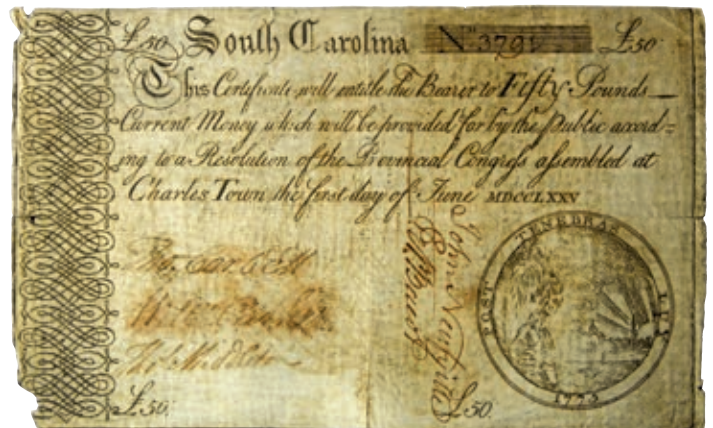 £50 South Carolina No. 3791 £50
This Certificate will entitle the Bearer to Fifty Pounds
Current Money which will be provided for by the Public accord=
ing to a Resolution of the Provincial Congreſs aſsembled at
Charles Town the firſt day of June MDCCLXXV
POST TENEBRAS LUX
1775
£50 £50